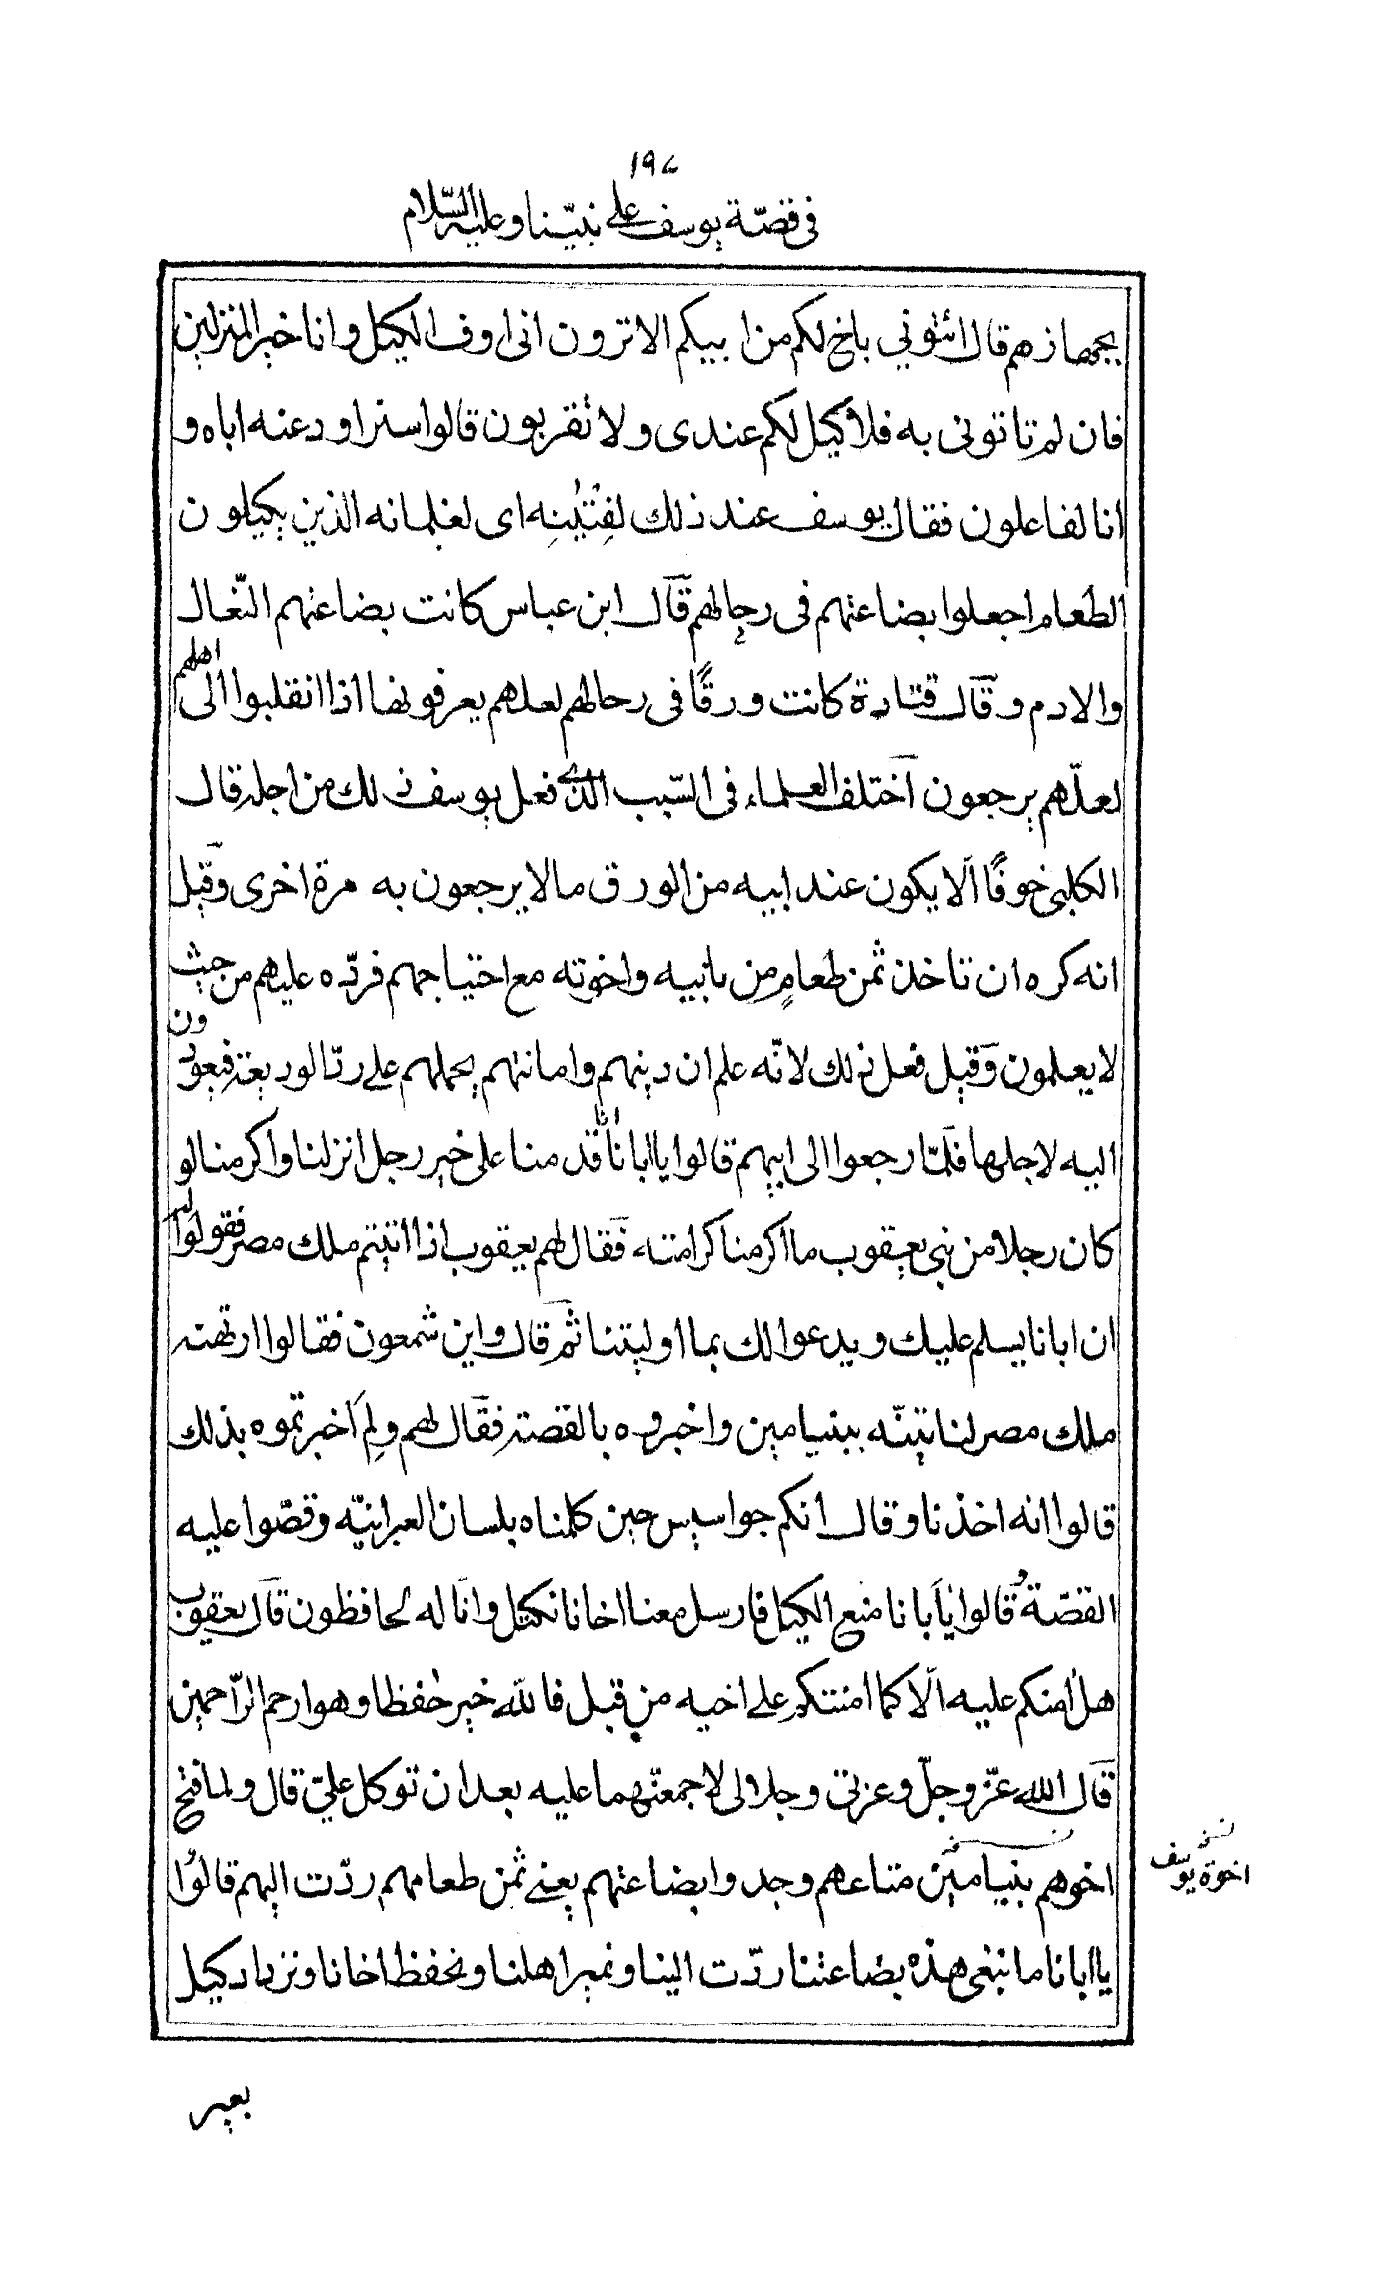 ١٩٧
في قصّة يوسف على نبيّنا وعليه السّلام
بجهازهم قال ائتوني باخ لكم من ابيكم الا ترون اني اوف الكيل وانا خير المنزلين
فان لم تاتونى به فلا كيل لكم عندى ولا تقربون قالوا سنراود عنه اباه و
انا لفاعلون فقال يوسف عند ذلك لفتيٰنِه اى لغلمانه الذين يكيلون
الطعام اجعلوا بضاعتهم فى رحالهم قال ابن عباس كانت بضاعتهم النّعال
والادم وقال قتادة كانت ورقًا في رحالهم لعلهم يعرفونها اذا انقلبوا الى اهلهم
لعلّهم يرجعون اختلف العلماء فى السّبب الذى فعل يوسف ذلك من اجله قال
الكلبى خوفًا الّا يكون عند ابيه من الورق ما لا يرجعون به مرة اخرى وقيل
انه كره ان تاخذ ثمن طعامٍ من بابيه واخوته مع احتياجهم فردّه عليهم من حيث
لا يعلمون وقيل فعل ذلك لانّه علم ان دينهم وامانتهم يحملهم على ردّ الوديعة فيعودون
اليه لاجلها فلمّا رجعوا الى ابيهم قالوا يا ابانا انّا قدمنا على خير رجل انزلنا واكرمنا لو
كان رجلا من بنى يعقوب ما اكرمنا كرامته فقال لهم يعقوب اذا اتيتم ملك مصر فقولوا له
ان ابانا يسلم عليك ويدعوا لك بما اوليتنا ثم قال واين شمعون فقالوا ارتهنه
ملك مصر لناتينّه ببنيامين واخبروه بالقصة فقال لهم ولِمَ اخبرتموه بذلك
قالوا انه اخذنا وقال انكم جواسيس حين كلمناه بلسان العبرانيّه وقصّوا عليه
القصّة وقالوا يٰاَبانا منع الكيل فارسل معنا اخانا نكتل وانا له لحافظون قال يعقوب
هل اٰمنكم عليه الّا كما امنتكم على اخيه من قبل فالله خير حٰفظا وهو ارحم الرّاحمين
قال الله عزّ وجلّ وعزتى وجلالى لاجمعنّهما عليه بعد ان توكل عليّ قال ولما فتح
اخوهم بنيامين متاعهم وجدوا بضاعتهم يعنى ثمن طعامهم ردّت اليهم قالوا
يا ابانا ما نبغى هذه بضاعتنا ردّت الينا ونمير اهلنا ونحفظ اخانا ونزداد كيل
نسخه
اخوة يوسف
بعير